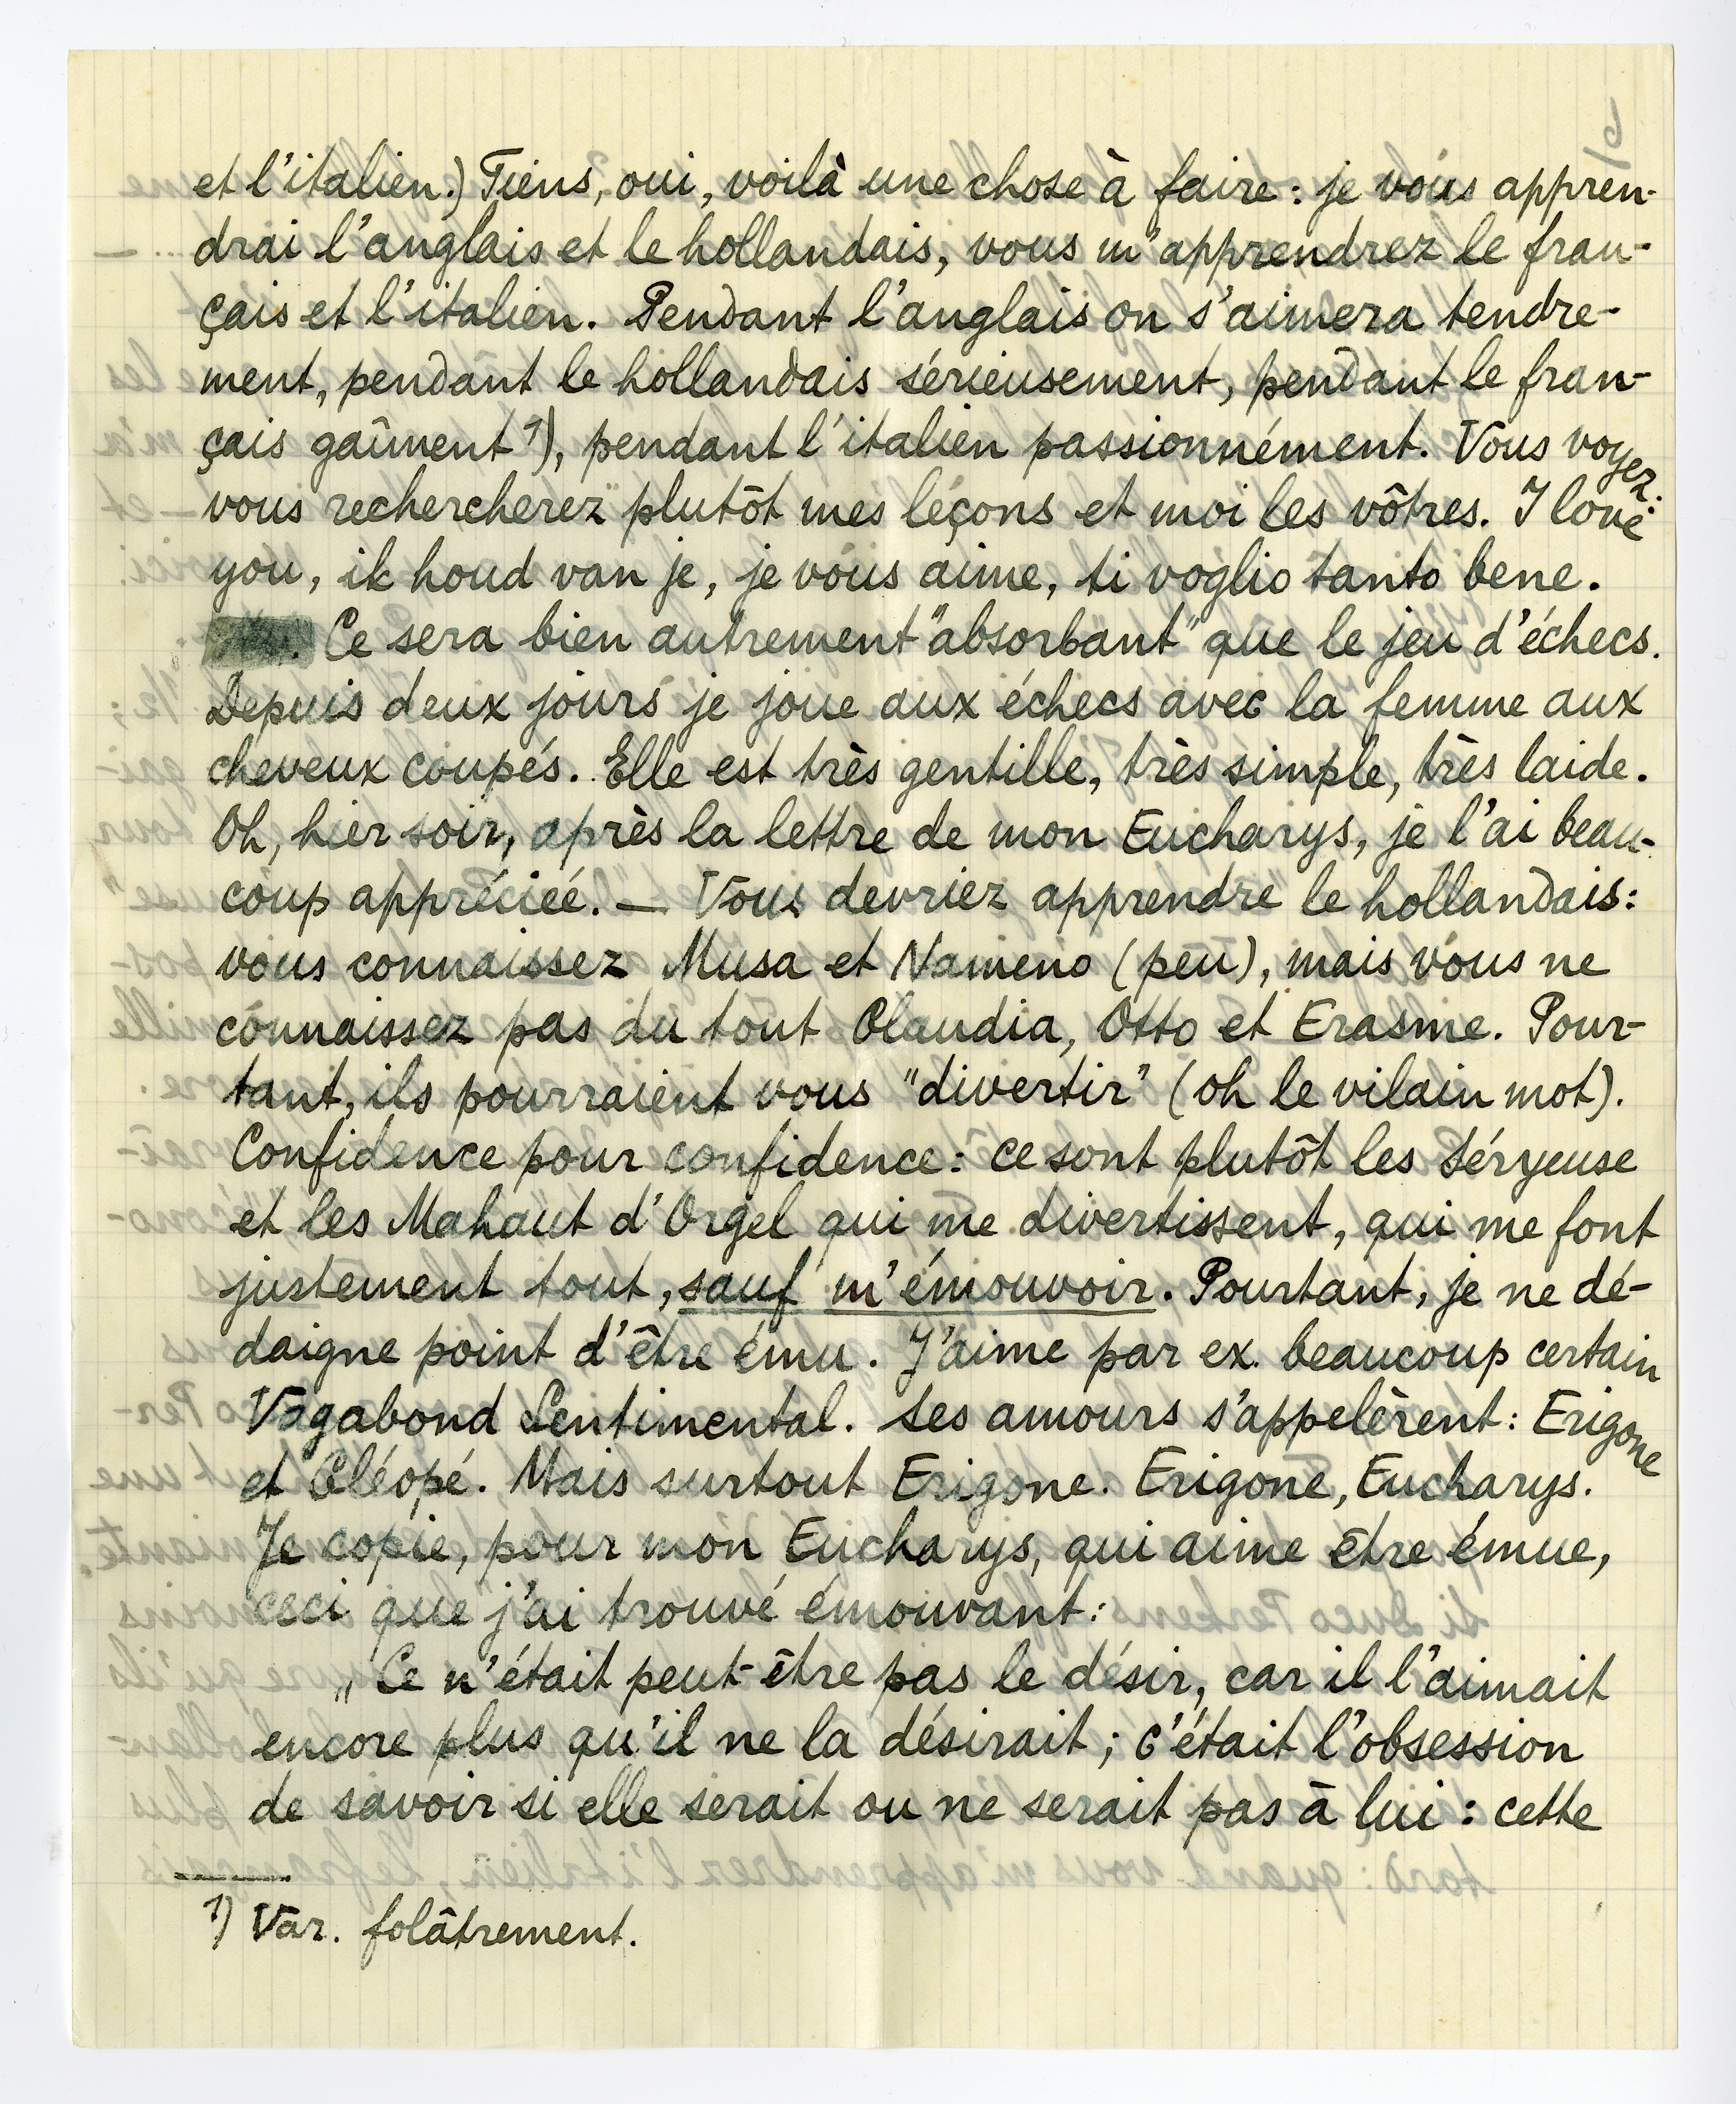 et l'italien.) Tiens, oui, voilà une chose à faire: je vous appren-
drai l'anglais et le hollandais, vous m'apprendrez le fran-
çais et l'italien. Pendant l'anglais on s'aimera tendre-
ment, pendant le hollandais sérieusement, pendant le fran-
çais gaîment 1), pendant l'italien passionnément. Vous voyez:
vous rechercherez plutôt mes leçons et moi les vôtres. I love
you, ik houd van je, je vous aime, ti voglio tanto bene.
Ce sera bien autrement "absorbant" que le jeu d'échecs.
Depuis deux jours je joue aux échecs avec la femme aux
cheveux coupés. Elle est très gentille, très simple, très laide.
Oh, hier soir, après la lettre de mon Eucharys, je l'ai beau-
coup appréciée. — Vous devriez apprendre le hollandais:
vous connaissez Musa et Nameno (peu), mais vous ne
connaissez pas du tout Claudia, Otto et Erasme. Pour-
tant, ils pourraient vous "divertir" (oh le vilain mot).
Confidence pour confidence: ce sont plutôt les Séryeuse
et les Mahaut d'Orgel qui me divertissent, qui me font
justement tout, sauf m'émouvoir. Pourtant, je ne dé-
daigne point d'être ému. J'aime par ex. beaucoup certain
Vagabond Sentimental. Ses amours s'appelèrent: Erigone
et Cléopé. Mais surtout Erigone. Erigone, Eucharys.
Je copie, pour mon Eucharys, qui aime être émue,
ceci que j'ai trouvé émouvant:
„Ce n'était peut-être pas le désir, car il l'aimait
encore plus qu'il ne la désirait; c'était l'obsession
de savoir si elle serait ou ne serait pas à lui: cette
1) Var. folâtrement.